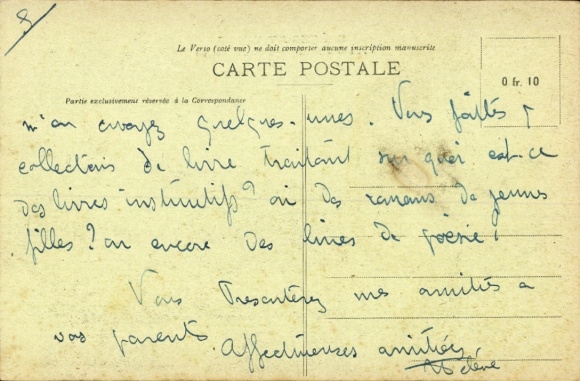 Le Verso (coté vue) ne doit comporter aucune inscription manuscrite
CARTE POSTALE
Partie exclusivement réservée à la Correspondance
0 fr. 10
m'en envoyez quelques-unes. Vous faîtes
collections de livre traitant sur quoi est-ce
des livres instructifs? ou des romans de jeunes
filles? ou encore des livres de poésie?
Vous Presenterez mes amitiés a
vos parents.
Affectueuses amitiés,